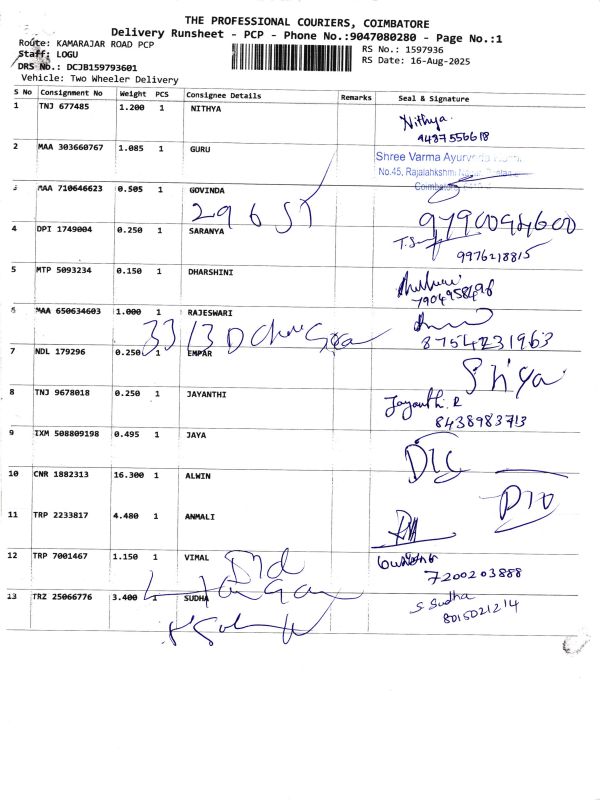 THE PROFESSIONAL COURIERS, COIMBATORE
Delivery Runsheet - PCP - Phone No.:9047080280 - Page No.:1
Route: KAMARAJAR ROAD PCP
RS No.: 1597936
Staff: LOGU
RS Date: 16-Aug-2025
DRS No.: DCJB159793601
Vehicle: Two Wheeler Delivery
S No Consignment No Weight PCS Consignee Details Remarks Seal & Signature
1 TNJ 677485 1.200 1 NITHYA
Nithya.
9487556618
2 MAA 303660767 1.085 1 GURU
Shree Varma Ayurveda
No.45, Rajalakshmi
Coimbatore
3 MAA 710646623 0.505 1 GOVINDA
296 ST
9790094600
4 DPI 1749004 0.250 1 SARANYA
9976218815
5 MTP 5093234 0.150 1 DHARSHINI
7904958498
6 MAA 650634603 1.000 1 RAJESWARI
33/3 D
8754231963
7 NDL 179296 0.250 1 EMPAR
Shiya
8 TNJ 9678018 0.250 1 JAYANTHI
Jayanthi. R
8438983713
9 IXM 508809198 0.495 1 JAYA
10 CNR 1882313 16.300 1 ALWIN
11 TRP 2233817 4.480 1 ANMALI
12 TRP 7001467 1.150 1 VIMAL
7200203888
13 TRZ 25066776 3.400 1 SUDHA
S Sudha
8015021214